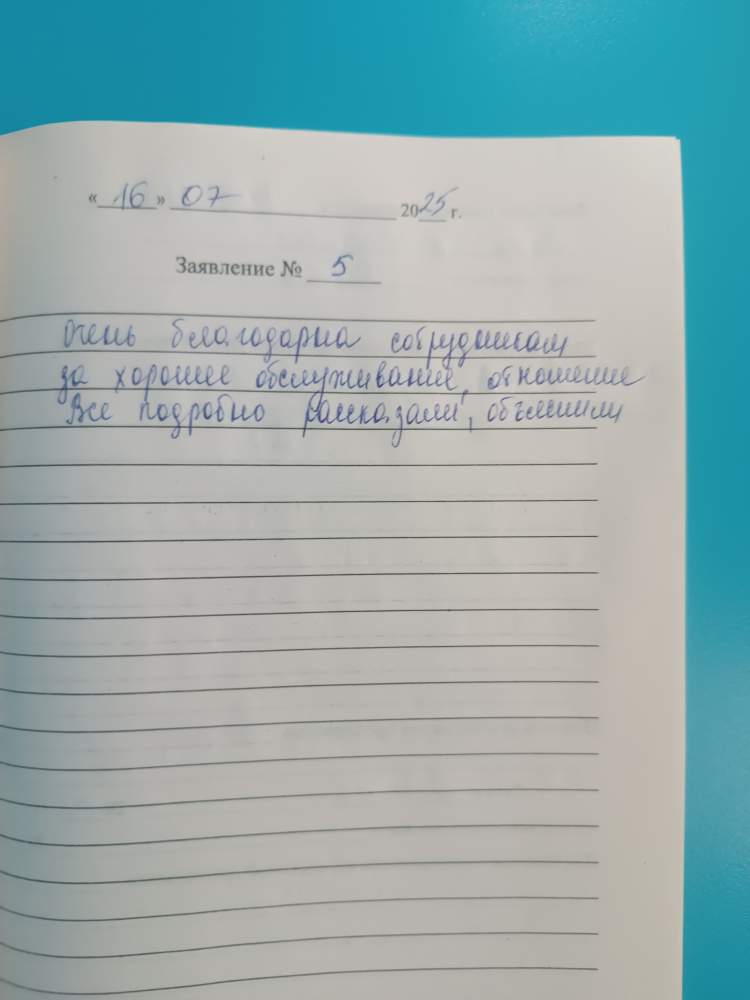 « 16 » 07 2025 г.
Заявление № 5
Очень благодарна сотрудникам
за хорошее обслуживание, отношение
Все подробно рассказали, объяснили